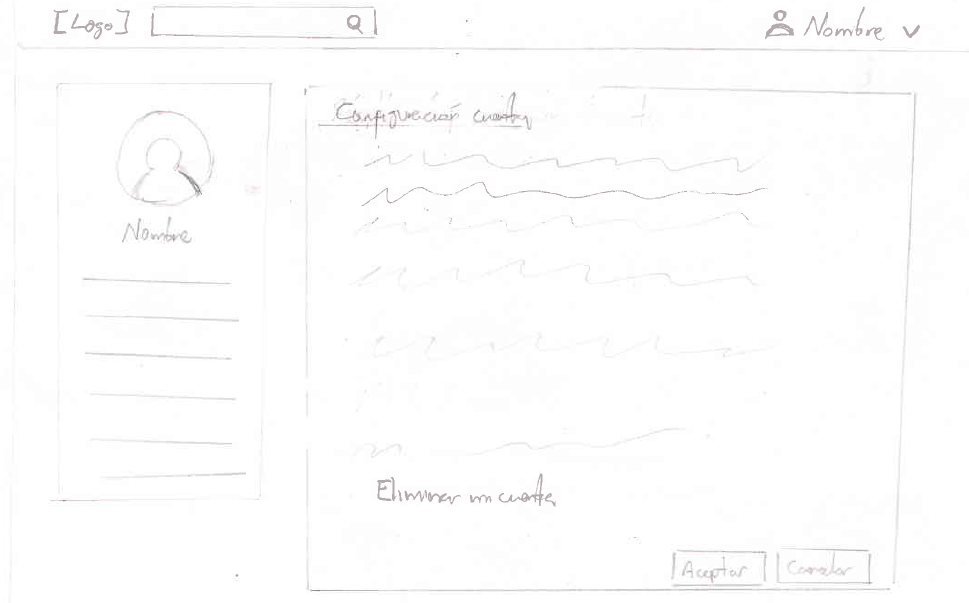 [Logo]
Nombre
Configuración cuenta
Nombre
Eliminar mi cuenta
Aceptar
Cancelar